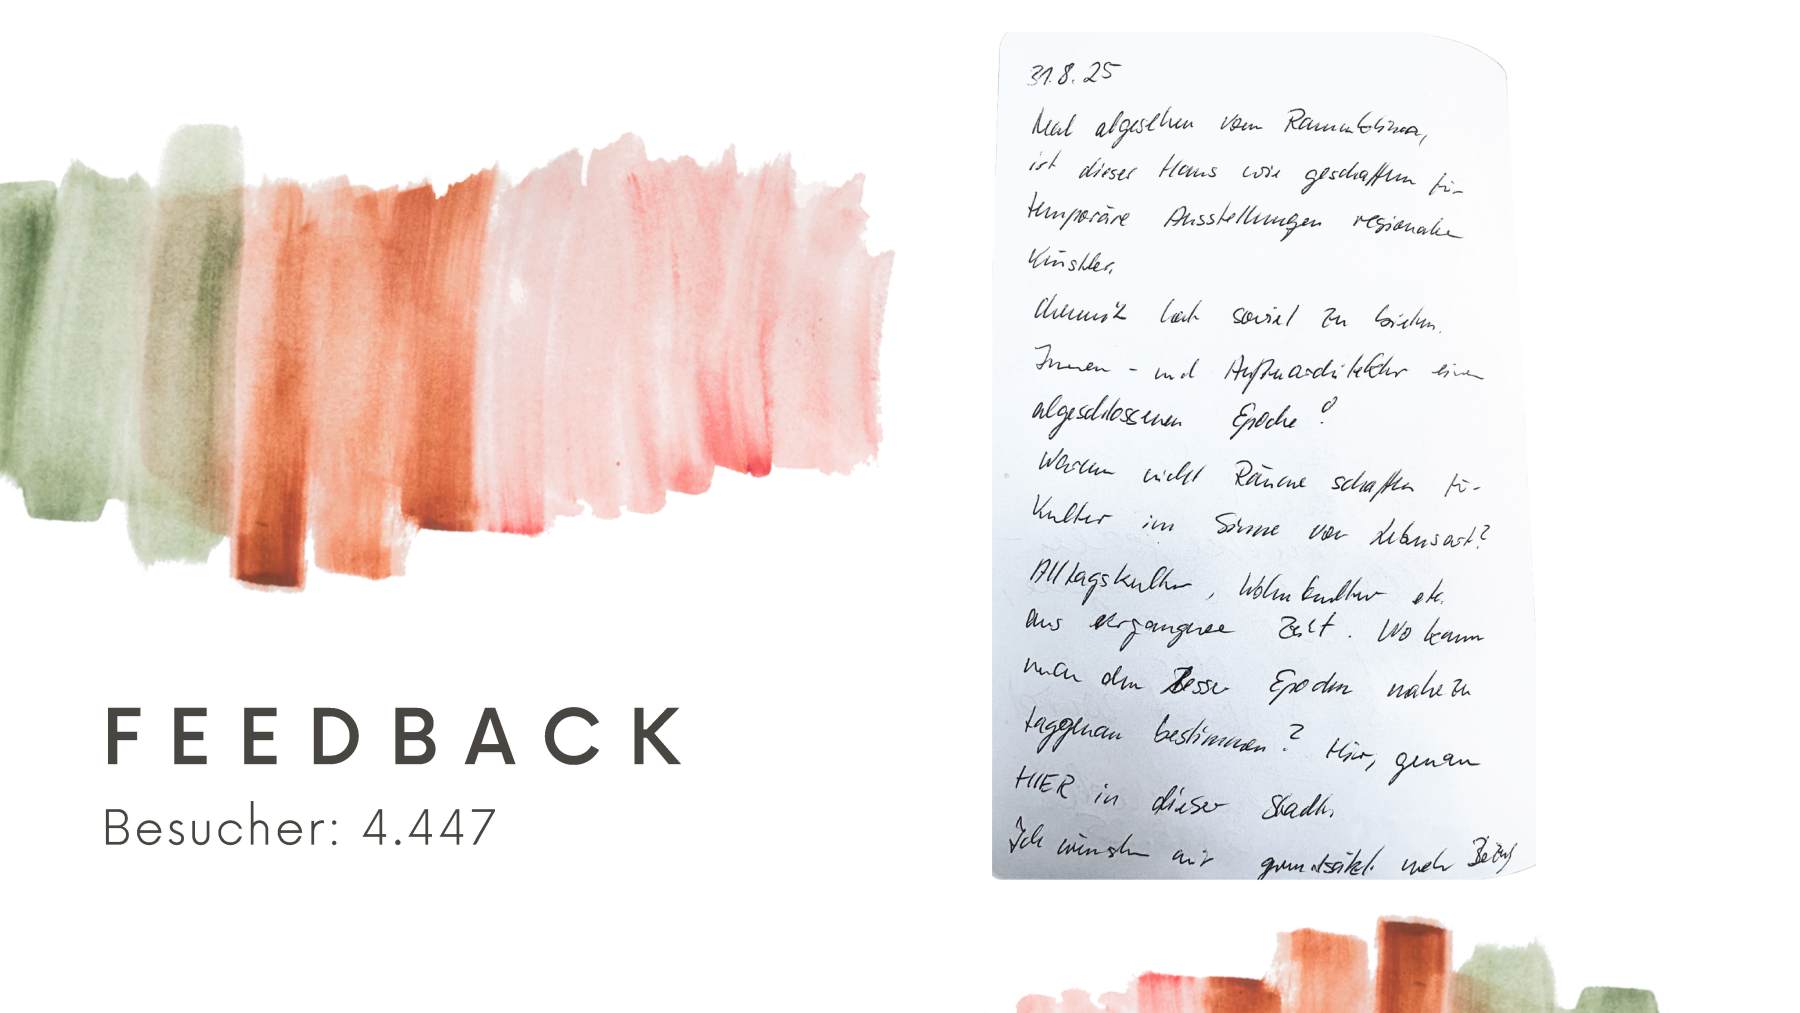 FEEDBACK
Besucher: 4.447
31.8.25
Mal abgesehen vom Raumklima,
ist dieses Haus wie geschaffen für
temporäre Ausstellungen regionaler
Künstler.
Chemnitz hat soviel zu bieten.
Innen- und Außenarchitektur einer
abgeschlossenen Epoche!
Warum nicht Räume schaffen für
Kultur im Sinne von Lebensart?
Alltagskultur, Wohnkultur etc.
aus vergangener Zeit. Wo kann
man den Epochen nahezu
taggenau bestimmen? Hier, genau
HIER in dieser Stadt.
Ich wünsche mir grundsätzl. mehr Bezug